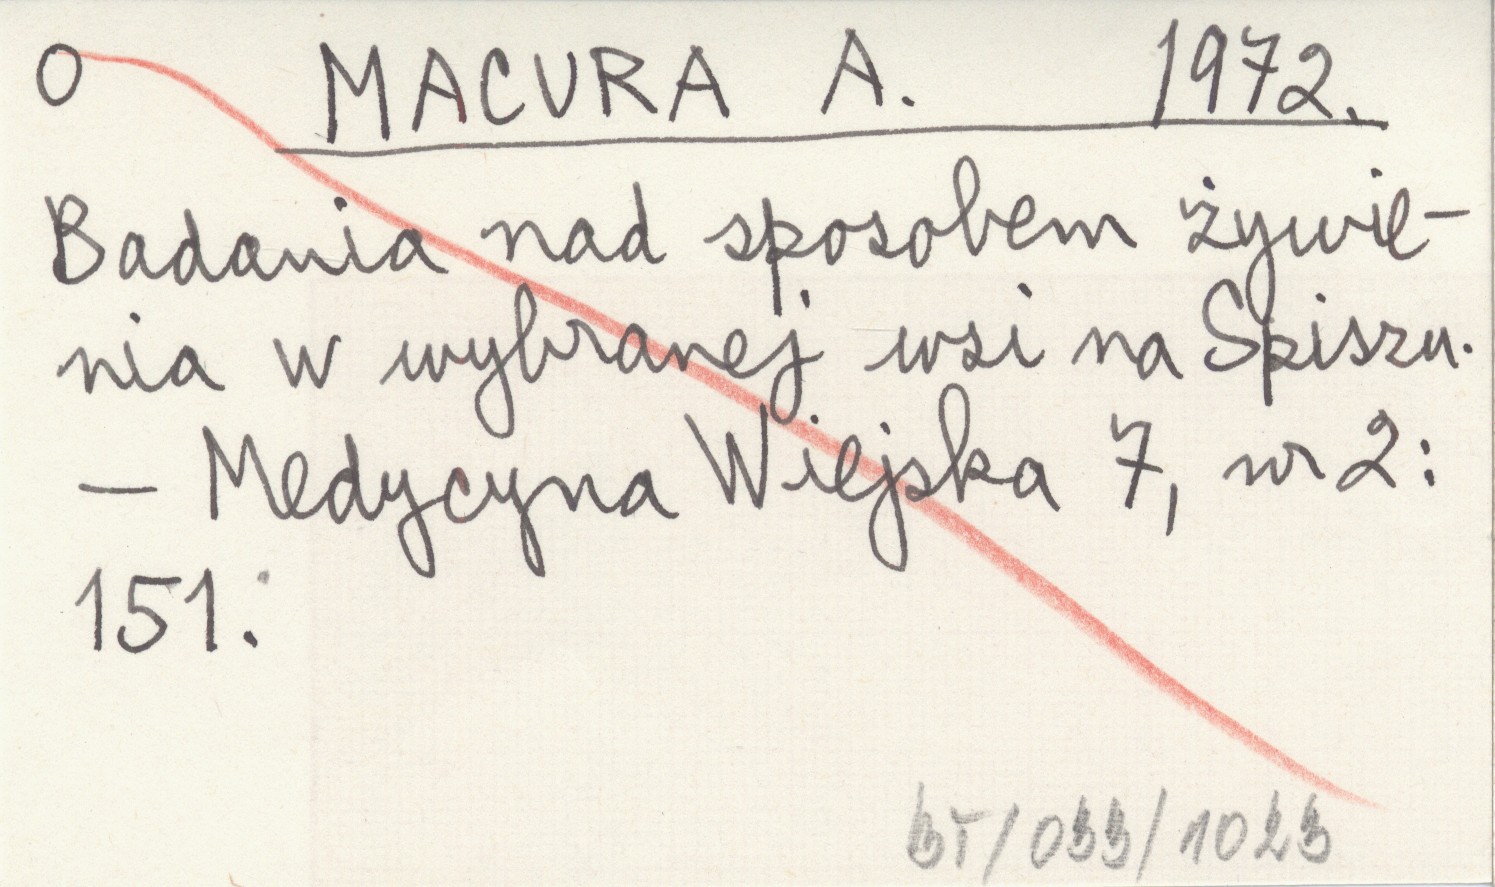 O MACURA A. 1972.
Badania nad sposobem żywie-
nia w wybranej wsi na Spiszu.
— Medycyna Wiejska 7, nr 2:
151.
BT/033/1023